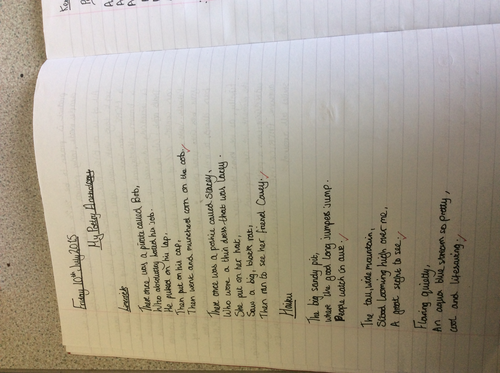 Friday 10th July 2015
My Poetry Anthology
Limerick
There once was a pirate called Bob,
Who absolutely hated his job.
He picked on his lap,
Then put on his cap,
Then went and munched corn on the cob.
There once was a poshie called Stacey.
Who wore a thin dress that was Lacey.
She put on her hat,
Saw a big, black rat,
Then ran to see her friend Casey.
Haiku
The big sandy pit,
where the good long jumpers jump.
People watch in awe.
The tall, wide mountain,
Stood looming high over me,
A great sight to see.
Flowing quietly,
An aqua blue stream so pretty,
cool and lifesaving.